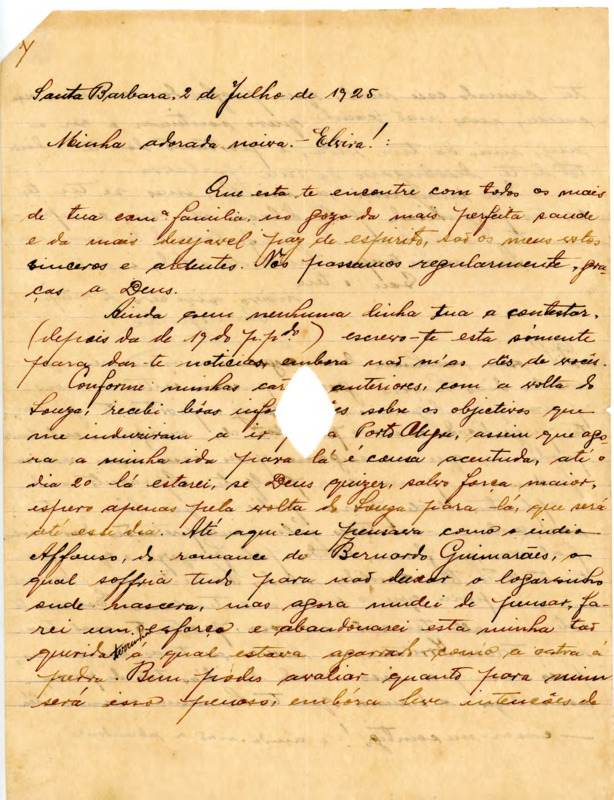 Santa Barbara, 2 de Julho de 1925
Minha adorada noiva. - Elvira! :
Que esta te encontre com todos os mais
de tua exmª familia, no gozo da mais perfeita saude
e da mais desejavel paz de espirito, são os meus votos
sinceros e ardentes. Nós passamos regularmente, gra-
ças a Deus.
Ainda sem nenhuma linha tua a contestar,
(depois da de 19 do p.pdo) escrevo-te esta sómente
para dar-te noticias, embora não m'as dês de vocês.
Conforme minhas car anteriores, com a volta do
Souza, recebi bôas info es sobre os objectivos que
me induziram a ir p a Porto Alegre, assim que ago-
ra a minha ida para lá é cousa acentuada, até o
dia 20 lá estarei, se Deus quizer, salvo força maior,
espero apenas pela volta do Souza para lá, que será
até esse dia. Até aqui eu pensava como o indio
Affonso, do romance de Bernardo Guimarães, o
qual soffria tudo para não deixar o logarsinho
onde nascera, mas agora mudei de pensar, fa-
rei um esforço e abandonarei esta minha tão
querida a qual estava agarrado como a ostra a
pedra. Bem pódes avaliar quanto para mim
será isso penoso, embóra leve intenções de